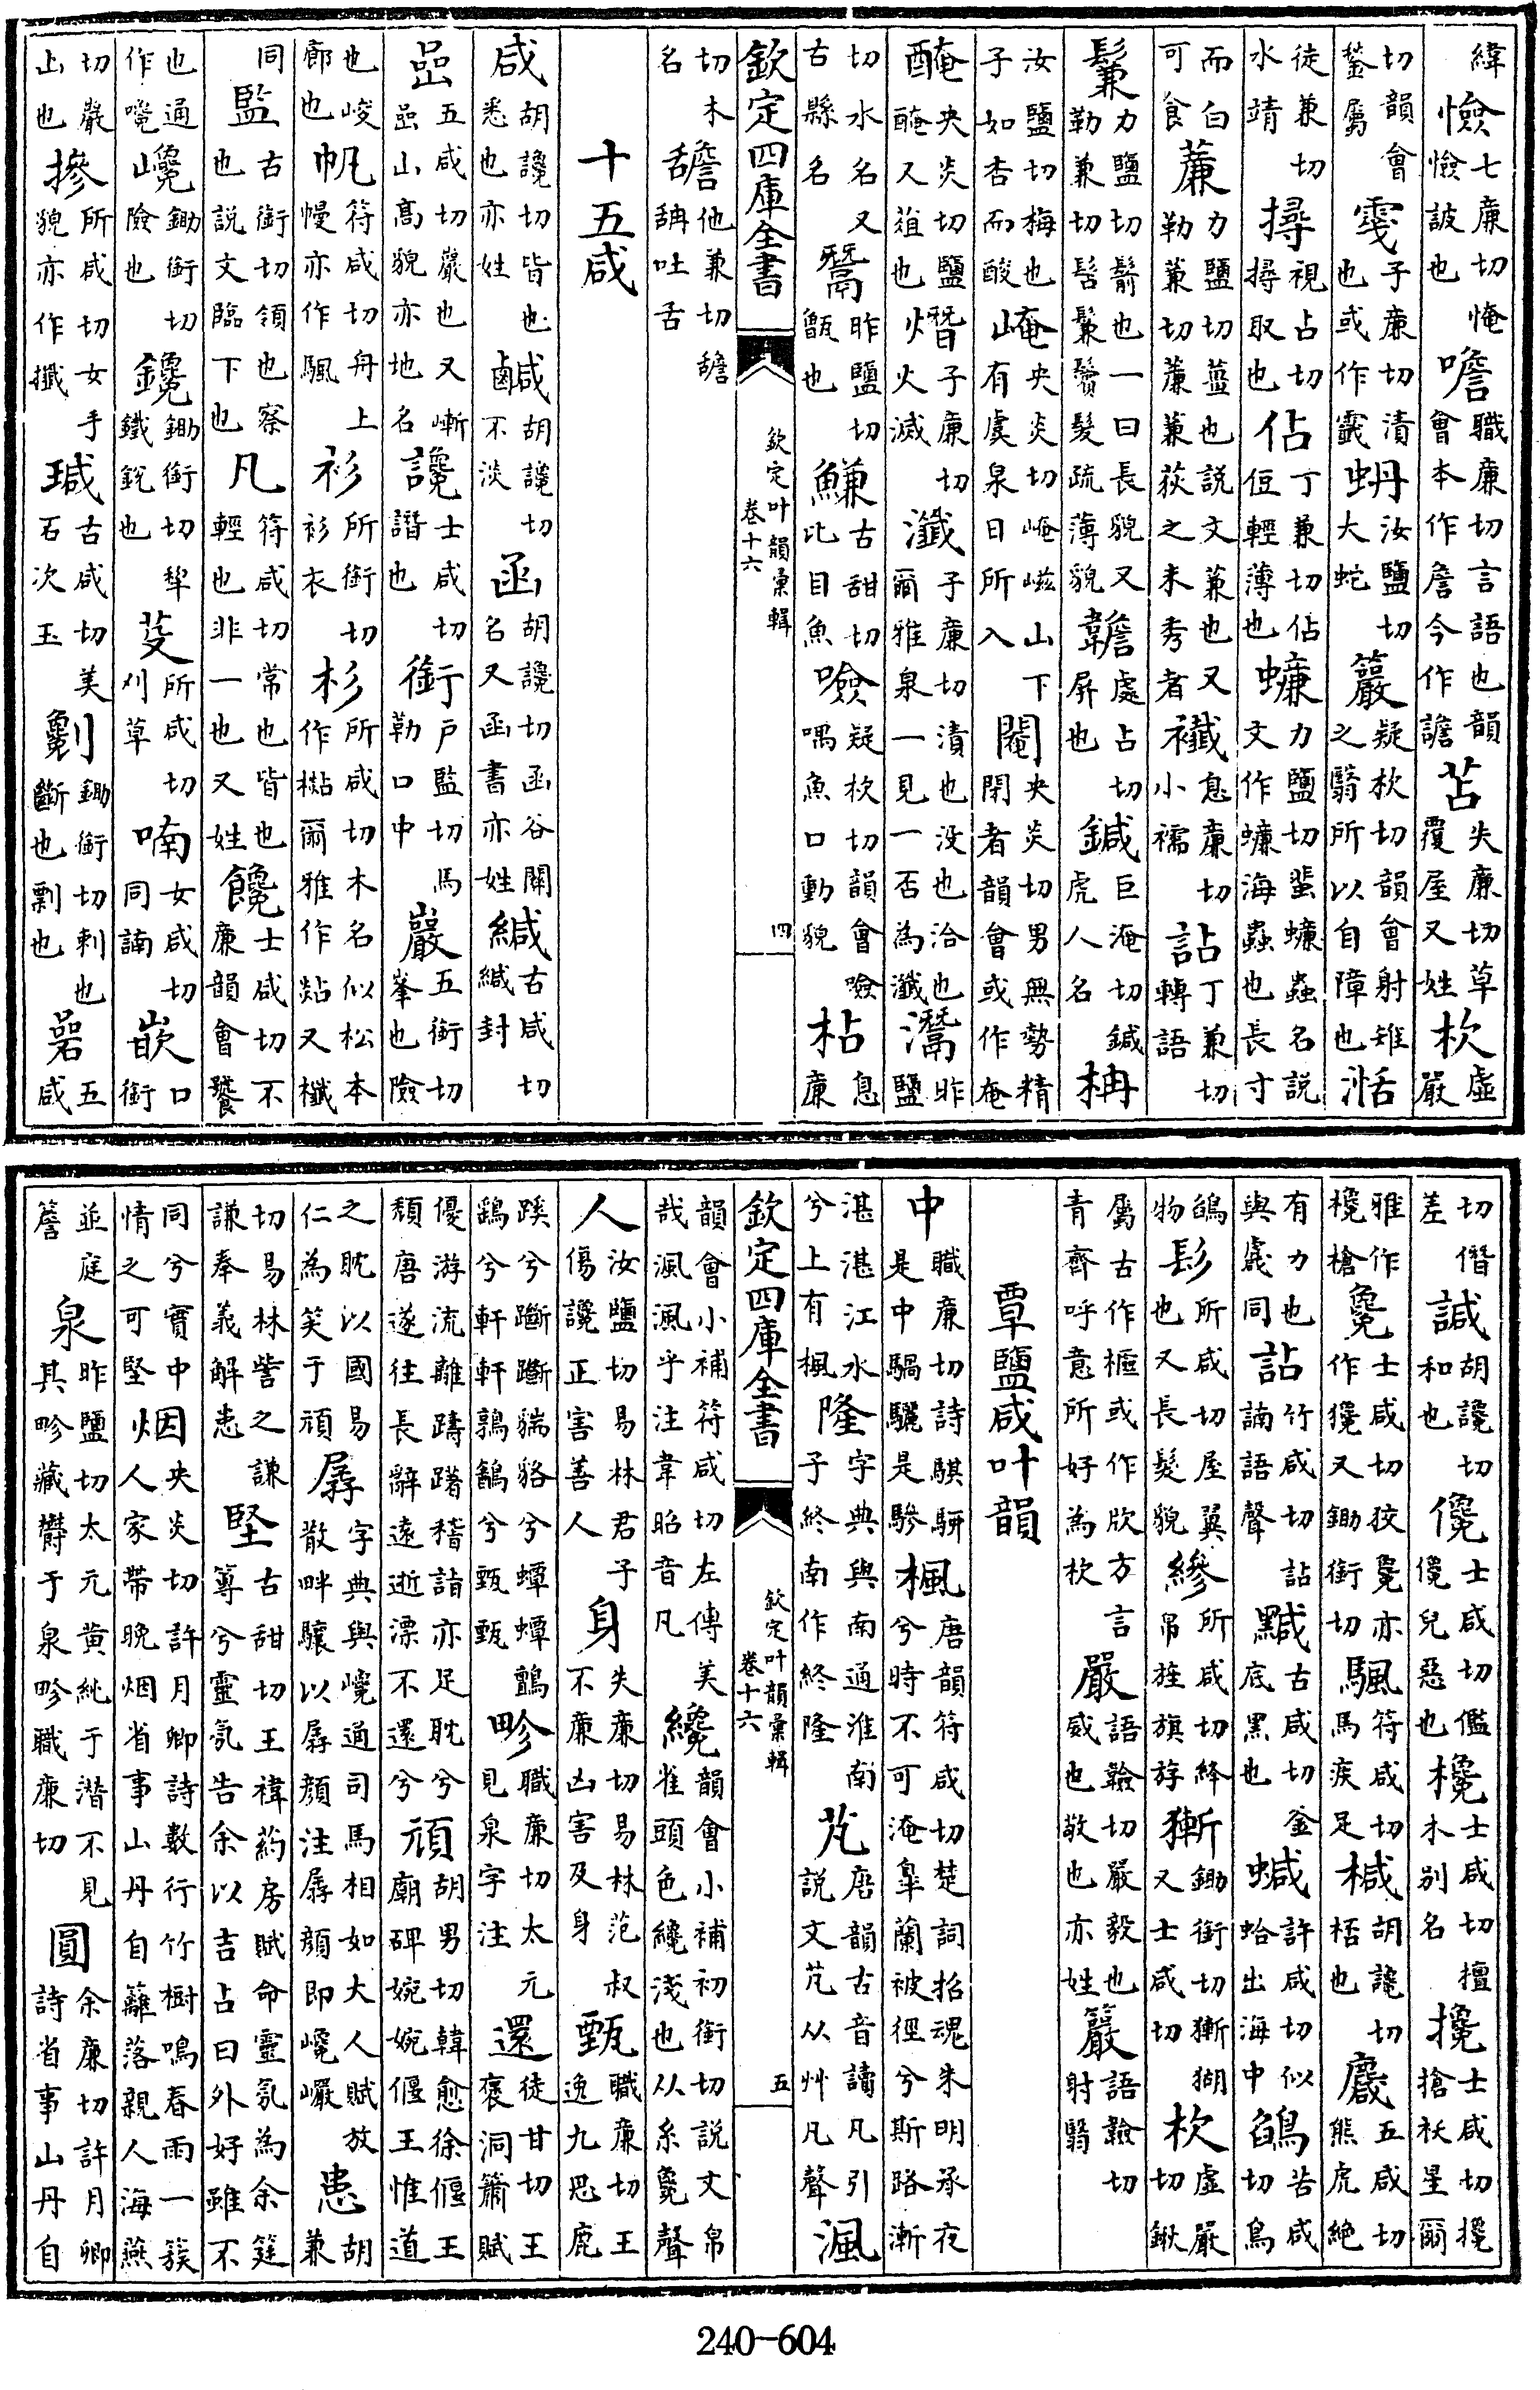 緯憸七廉切㤿憸詖也噡職廉切言語也韻會本作詹今作譫苫失廉切草覆屋又姓杴虛嚴
切韻會鍫屬子廉切漬也或作蚦汝鹽切大蛇疑杴切韻會射雉之翳所以自障也湉
徒兼切水靖撏視占切撏取也佔丁兼切佔侸輕薄也蠊力鹽切蜚蠊蟲名說文作蠊海蟲也長寸
而白可食薕力鹽切薑也說文蒹也又勒蒹切薕蒹荻之未秀者襳息廉切小襦詀丁兼切轉語
鬑力鹽切鬋也一曰長貌又勒兼切髻鬑鬢髮疏薄貌韂處占切屏也鍼巨淹切鍼虎人名柟
汝鹽切梅也子如杏而酸崦央炎切崦嵫山下有虞泉日所入閹央炎切男無勢精閉者韻會或作奄
醃央炎切鹽醃又葅也熸子廉切火滅瀸子廉切漬也没也洽也爾雅泉一見一否為瀸灊昨鹽
切水名又古縣名鬵昨鹽切甑也鰜古甜切比目魚噞疑杴切韻會噞喁魚口動貌枮息廉
欽定四庫全書 欽定叶韻彚輯 卷十六 四
切木名他兼切吐舌
十五咸
咸胡讒切皆也悉也亦姓鹹胡讒切不淡函胡讒切函谷關名又函書亦姓緘古咸切緘封
嵒五咸切巖也又嶃嵒山高貌亦地名讒士咸切譖也銜戶監切馬勒口中巖五銜切峯也險
也峻廊也帆符咸切舟上幔亦作颿衫所銜切衫衣杉所咸切木名似松本作㯳爾雅作煔又櫼
同監古銜切領也察也說文臨下也凡符咸切常也皆也輕也非一也又姓饞士咸切不廉韻會饕
也通作嚵巉鋤銜切險也鑱鋤銜切犂鐵銳也芟所咸切刈草喃女咸切同諵嵌口銜
切巖山也摻所咸切女手貌亦作攕瑊古咸切美石次玉劖鋤銜切刺也斷也剽也碞五咸
切僭差諴胡讒切和也儳士咸切儖儳皃惡也欃士咸切檀木别名攙士咸切攙搶祅星爾
雅作欃槍毚士咸切狡毚亦作㺥又鋤銜切颿符咸切馬疾足椷胡讒切桮也麙五咸切熊虎絶
有力也與同詀竹咸切詀諵語聲黬古咸切釜底黑也許咸切似蛤出海中鵮苦咸切鳥
鵮物髟所咸切屋翼也又長髮貌縿所咸切絳帛旌旗斿獑鋤銜切獑猢又士咸切杴虛嚴切鍬
屬古作或作方言青齊呼意所好為杴嚴語韽切嚴毅也威也敬也亦姓語韽切射翳
覃鹽咸叶韻
中職廉切詩騏駵是中騧驪是驂楓唐韻符咸切楚詞招魂朱明承夜兮時不可淹皐蘭被徑兮斯路漸
湛湛江水兮上有楓隆字典與南通淮南子終南作終隆芃唐韻古音讀凡引說文芃从艸凡聲渢
韻會小補符咸切左傳美哉渢渢乎注韋昭音凡纔韻會小補初銜切說文帛雀頭色纔淺也从糸毚聲
欽定四庫全書 欽定叶韻彚輯 卷十六 五
人汝鹽切易林君子傷讒正害善人身失廉切易林范叔不廉凶害及身甄職廉切王逸九思鹿
蹊兮兮躖躖貒貉兮蟫蟫鸇鷂兮軒軒鶉鵪兮甄甄畛職廉切太元見泉字注還徒甘切王褒洞簫賦
優游流離躊躇稽詣亦足耽兮頹唐遂往長辭遠逝漂不還兮頑胡男切韓愈徐偃王廟碑婉婉偃王惟道
之耽以國易仁為笑于頑孱字典與巉通司馬相如大人賦放散畔驤以孱顏注孱顏即巉巗患胡兼
切易林訾之謙謙奉義解患堅古甜切王褘葯房賦命靈氛為余筳篿兮靈氛告余以吉占曰外好雖不
同兮實中情之可堅烟央炎切許月卿詩數行竹樹鳴春雨一簇人家帶晚烟省事山丹自籬落親人海燕
並庭簷泉昨鹽切太元黃純于潛不見其畛藏鬱于泉畛職廉切圓余廉切許月卿詩省事山丹自
240-604